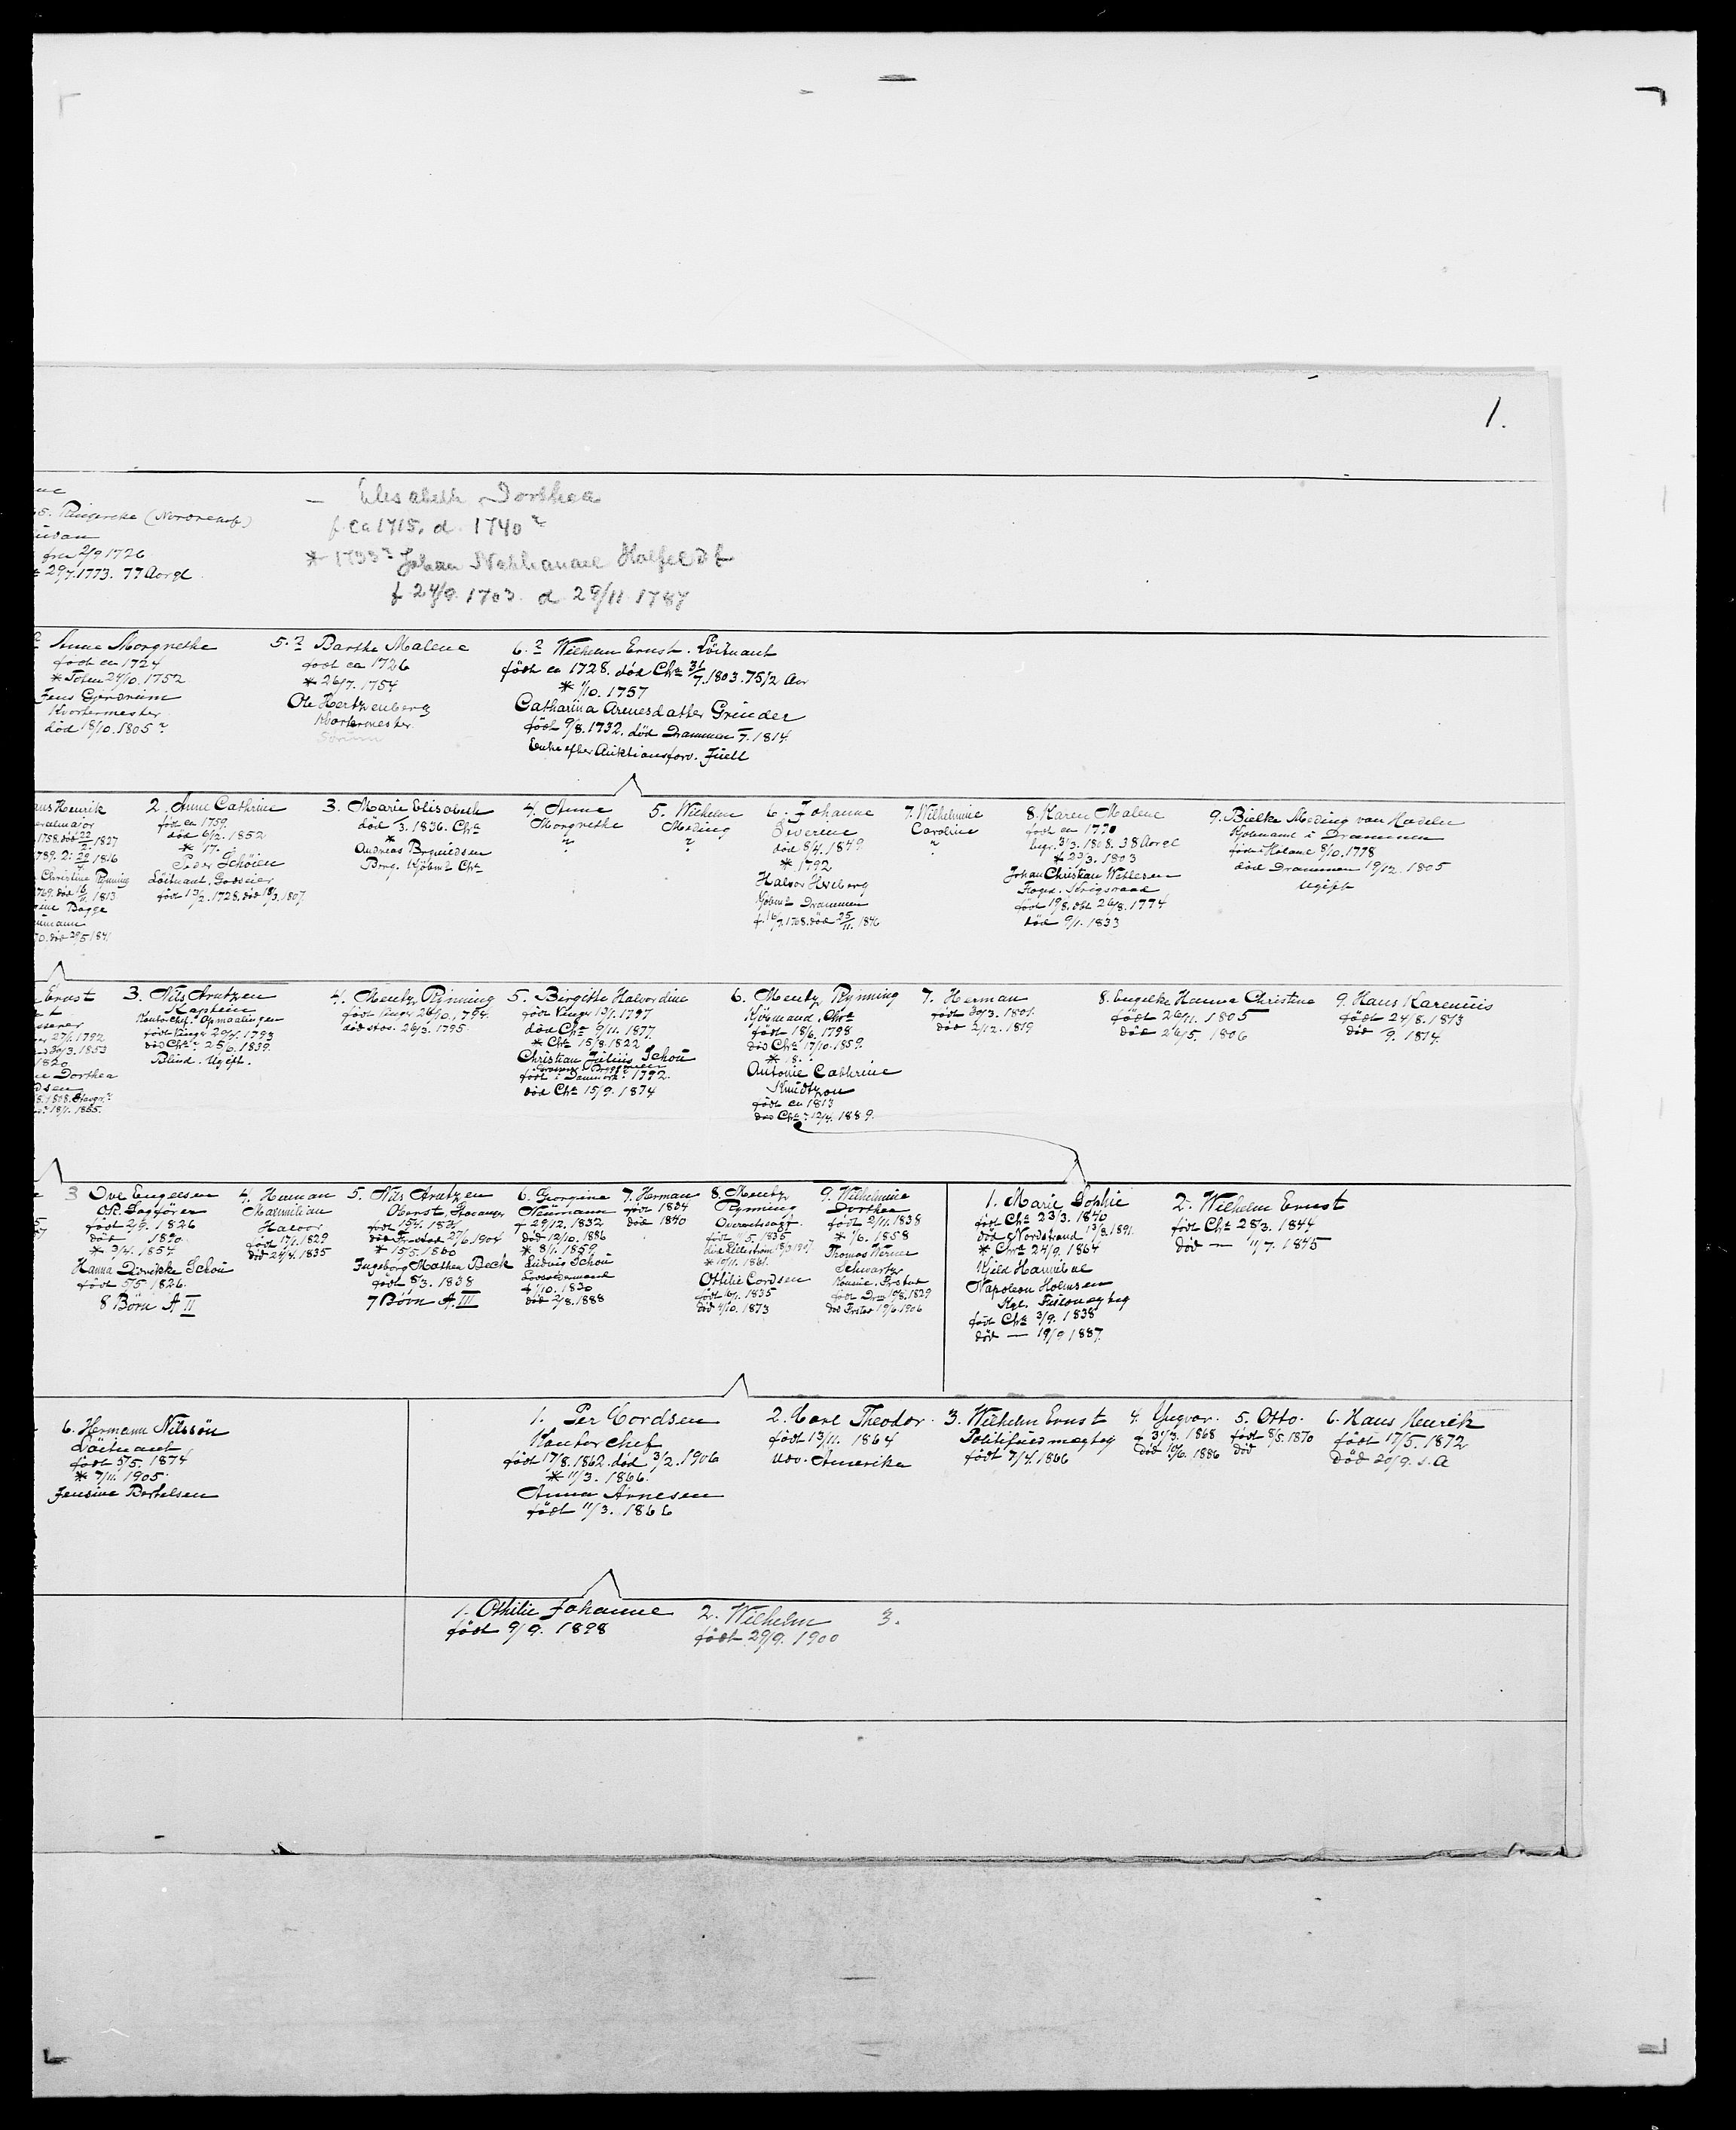 1.
5. (Nordrehof)
fra 2/9 1726
29/7. 1773. 77 Aar gl
— Elisabeth Dorthea
f. ca 1715, d. 1740?
* 1733? Johan Nathanael Halfeldt
f 24/9. 1703. d 29/11 1787
Anne Morgrethe
født ca 1724
* Toten 24/10. 1752
Jens Gjerdrum
Kvartermester
død 18/10. 1805?
5.? Barthe Malene
født ca 1726
* 26/7. 1754
Ole Hertzenberg
Kvartermester
Sörum
6.? Wilhelm Ernst. Löitnant
født ca 1728. død Chr. 31/7. 1803. 75 1/2 Aar
* 1/10. 1757
Catharina Arnesdatter Gründer
født 9/8. 1732. død Drammen /7. 1814
Enke efter Auktionsforv. Juell
Hans Henrik
1758. død 22/2. 1827
1789. 2: 1816
Christine Rynning
1769. død 16/11. 1813
Bagge
død 29/5 1841
2. Anne Cathrine
født ca 1759
død 6/12. 1852
* 17 .
Peder Schöien
Löitnant, Godseier
født 13/2. 1728. død 18/3. 1807
3. Marie Elisabeth
død /3. 1836. Chr.
*
Andreas Brynildsen
Borg. Kjöbmd. Chr.
4. Anne
Morgrethe
?
5. Wilhelm
Meding
?
6. Johanne
Severene
død 8/4. 1849
* 1792
Halvor Hoeberg
Kjöbmd. Drammen
f. 16/7. 1768. død 25/11. 1846
7. Wilhelmine
Caroline
?
8. Karen Malene
født ca 1770
begr. 31/3. 1808. 38 Aar gl
* 29/3. 1803
Johan Christian Wetlesen
Foged. Krigsraad
født 19/8. døbt 26/8. 1774
død 9/1. 1833
9. Bielke Meding von Hadeln
Kjöbmand i Drammen
født i Holand 8/10. 1778
død Drammen 19/12. 1805
Ugift
Ernst
27/1. 1792
30/3. 1853
1820
Dorthea
18/1. 1865.
3. Nils Arntzen
Kaptein
Kontorchef. Opmaalingen
født Ringer 29/1. 1793
død Chr. 25/6. 1839.
Blind. Ugift.
4. Mentz Rynning
født Ringer 26/10. 1794.
død stos. 26/3. 1795.
5. Birgitte Halvordine
født Ringer 19/1. 1797
død Chr. 9/11. 1877.
* Chr. 15/8. 1822
Christian Julius Schou
født i Danmark? 1792.
død Chr. 15/9. 1874
6. Mentz Rynning
Kjöbmand. Chr.
født 18/6. 1798
død Chr. 17/10. 1859.
* 18 .
Antonie Cathrine
Knudtzon
født ca 1813
død Chr. 12/4. 1889.
7. Herman
født 30/3. 1801.
død 2/12. 1819
8. Engelke Hanna Christine
født 26/11. 1805
død 26/5. 1806
9. Hans Karenius
født 24/8. 1813
død /9. 1814.
3 Ove Engelsen
OR. Sagfører
født 2/9. 1826
død 1870
* 3/4. 1854
Hanna Divikke Schou
født 5/5. 1826.
8 Börn A II
4. Herman
Maximilian
Halvor
født 17/1. 1829
død 24/4. 1835
5. Nils Arntzen
Oberst, Stavanger
født 19/4. 1831
død Fredrstad 27/6. 1904
* 15/5. 1860
Ingeborg Mathea Beck
født 8/3. 1838
7 Börn A. III
6. Georgine
Neumann
f 29/12. 1832
død 12/10. 1886
* 8/11. 1859
Ludvig Schou
f 1/10. 1830
død 2/8. 1888
7. Herman
født 1834
død 1840
8. Mentz
Rynning
Overretssagf.
født 11/5. 1835
død Lilleström 18/3 1907
* 19/11. 1861.
Othilie Cordsen
født 16/1. 1835
død 4/10. 1873
9. Wilhelmine
Dorthea
født 2/11. 1838
* 1/6. 1858
Thomas Werner
Schwartz
født Drm. 19/8. 1829
død 19/6. 1906
1. Marie Sophie
født Chr. 23/3. 1840
død Nordstrand 13/8. 1891.
* Chr. 24/9. 1864
Kjeld Hannibal
Napoleon Holmsen
Kgl. Fuldmægtig
født Chr. 3/9. 1838
død — 19/9 1887.
2. Wilhelm Ernst
født Chr. 28/3. 1844
død — 11/7. 1845
6. Hermann Nilssön
Löitnant
født 5/5. 1874
* 7/11. 1905.
Jensine Bertelsen
1. Per Cordsen
Kontorchef
født 17/8. 1862. død 3/2. 1906
* 11/3. 1866.
Anna Arnesen
født 11/3. 1866
2. Carl Theodor.
født 13/11. 1864
udv. Amerika
3. Wilhelm Ernst
Politifuldmægtig
født 7/4. 1866
4. Yngvar.
f 31/3. 1868
død 10/6. 1886
5. Otto.
født 8/5. 1870
død
6. Hans Henrik
født 17/5. 1872
død 20/9. s. A
1. Othilie Johanne
født 9/9. 1898
2. Wilhelm
født 29/9. 1900
3.